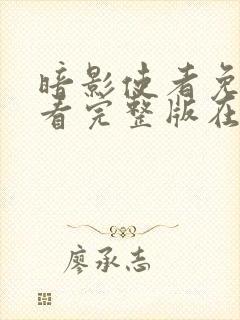 暗影使者免
看完整版在
廖承志